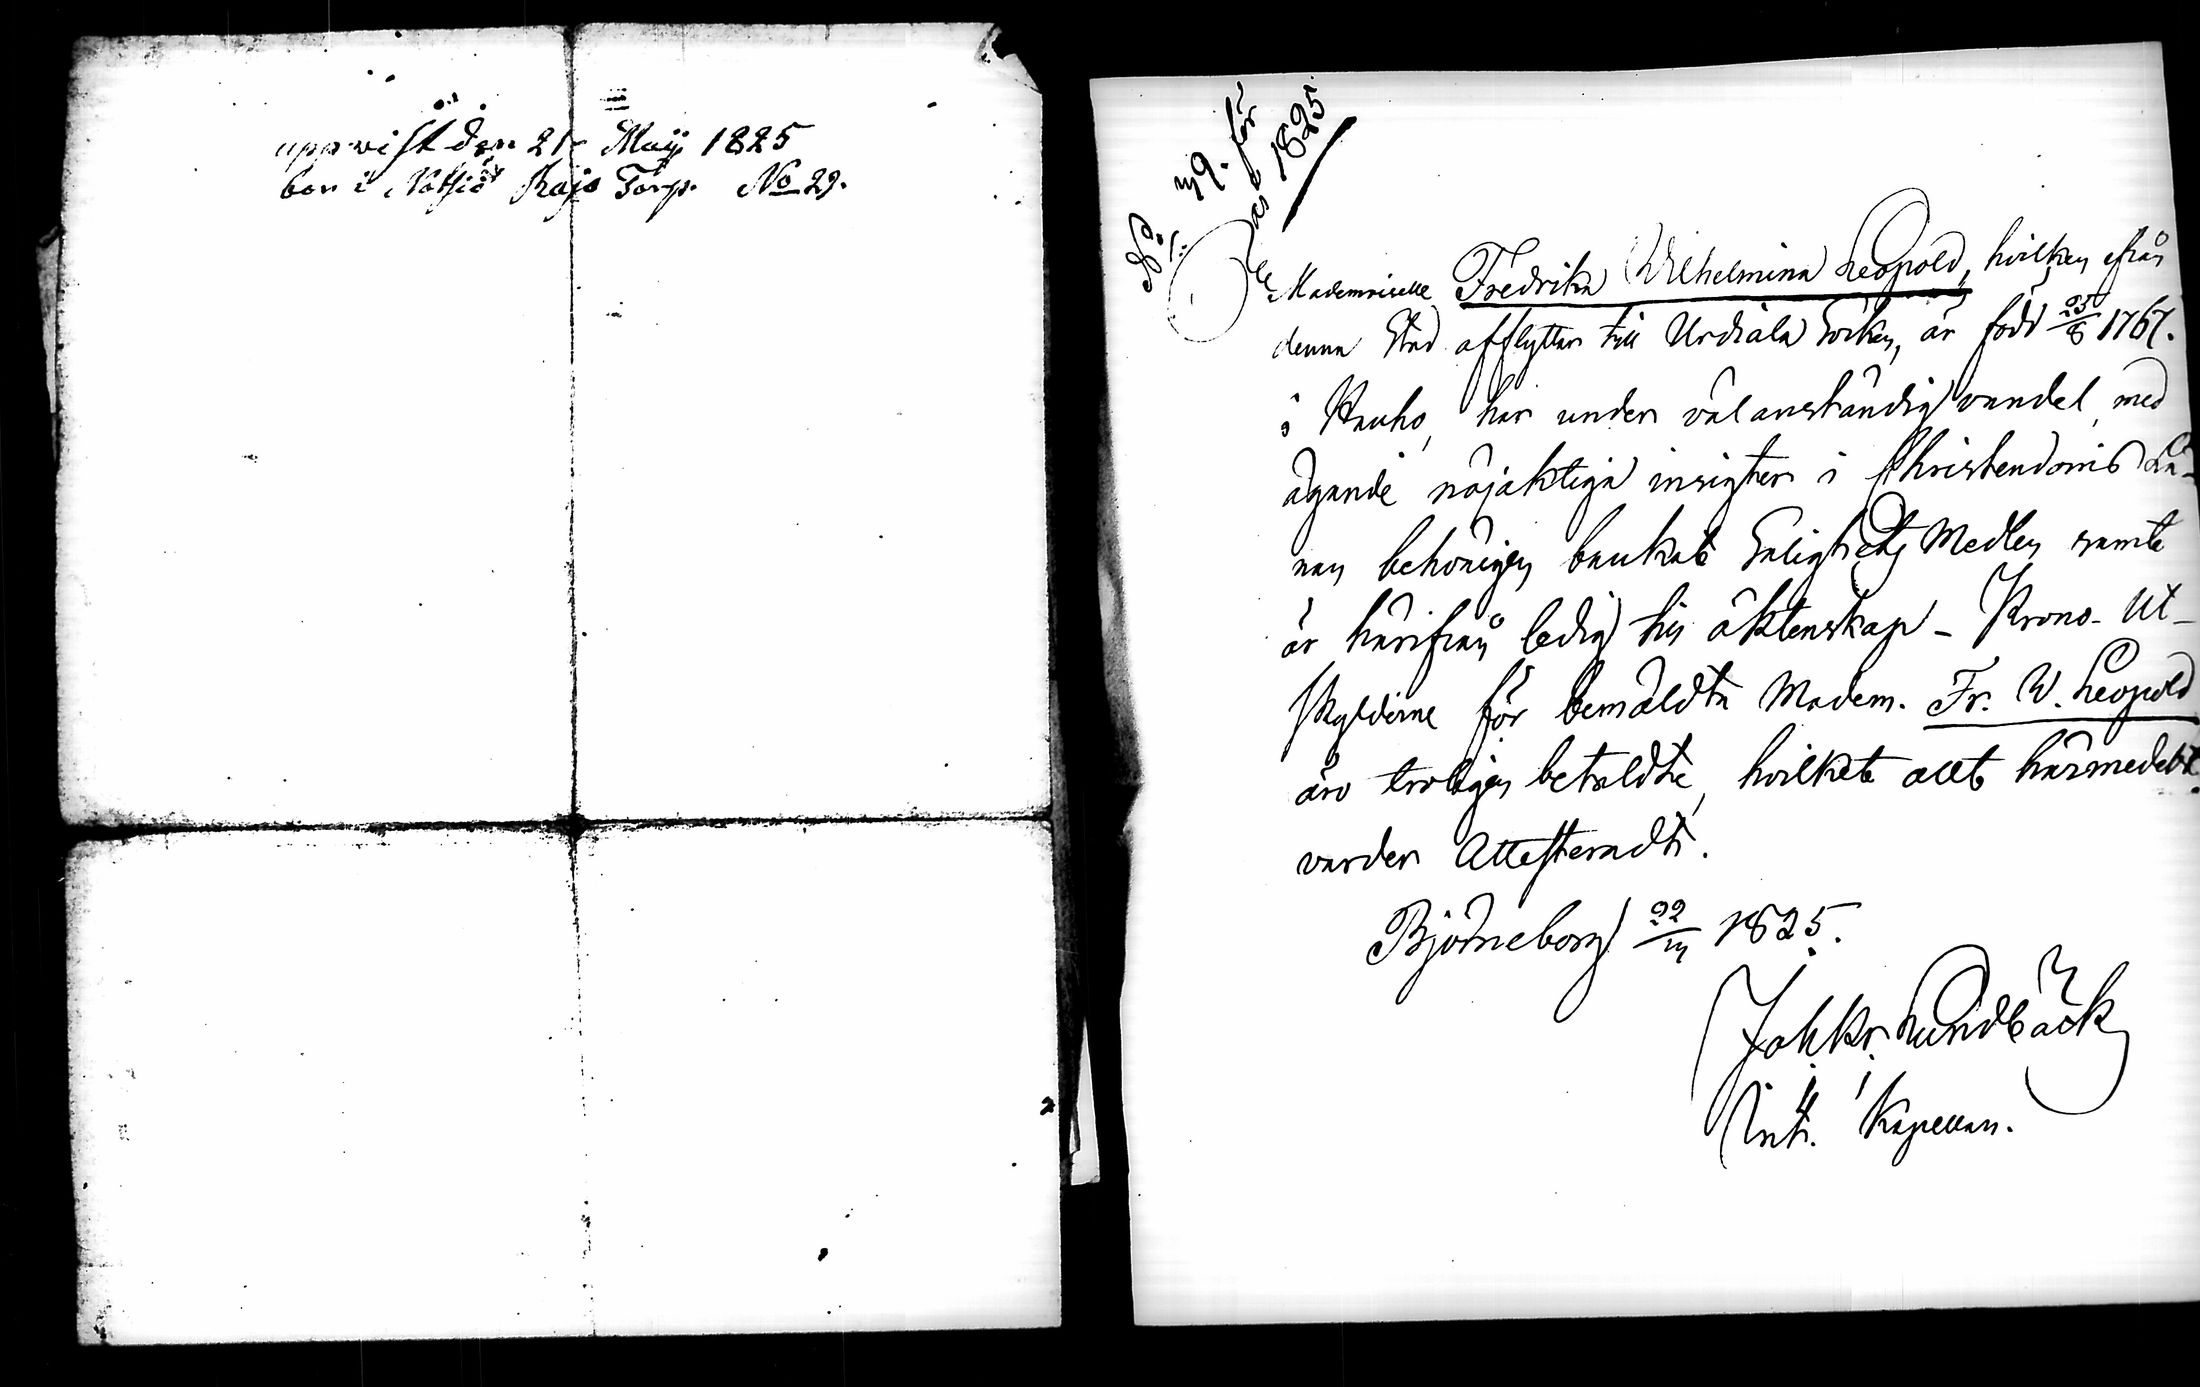 uppvist den 21 Maij 1825
bor i Notsiö Rajs Torp. No 29.
No 39. för
1825
Mademoiselle Fredrika Wilhelmina Leopold, hvilken ifrån
denna Stad afflyttar till Urdiala Socken, är född 25/8 1767.
i Hauho, har under väl anständig vandel, med
ägande nöjaktiga insigter i Christendoms Lä-
ran behörigen brukat Salighets Medlen samt
är härifrån ledig till äktenskap – Krono-Ut-
skylderne för bemäldta Madem. Fr. W. Leopold
äro troligen betaldte, hvilket allt härmedelst
varder Attesteradt.
Björneborg 22/3 1825.
Joh Kr. Lundbäck
Kapellan.